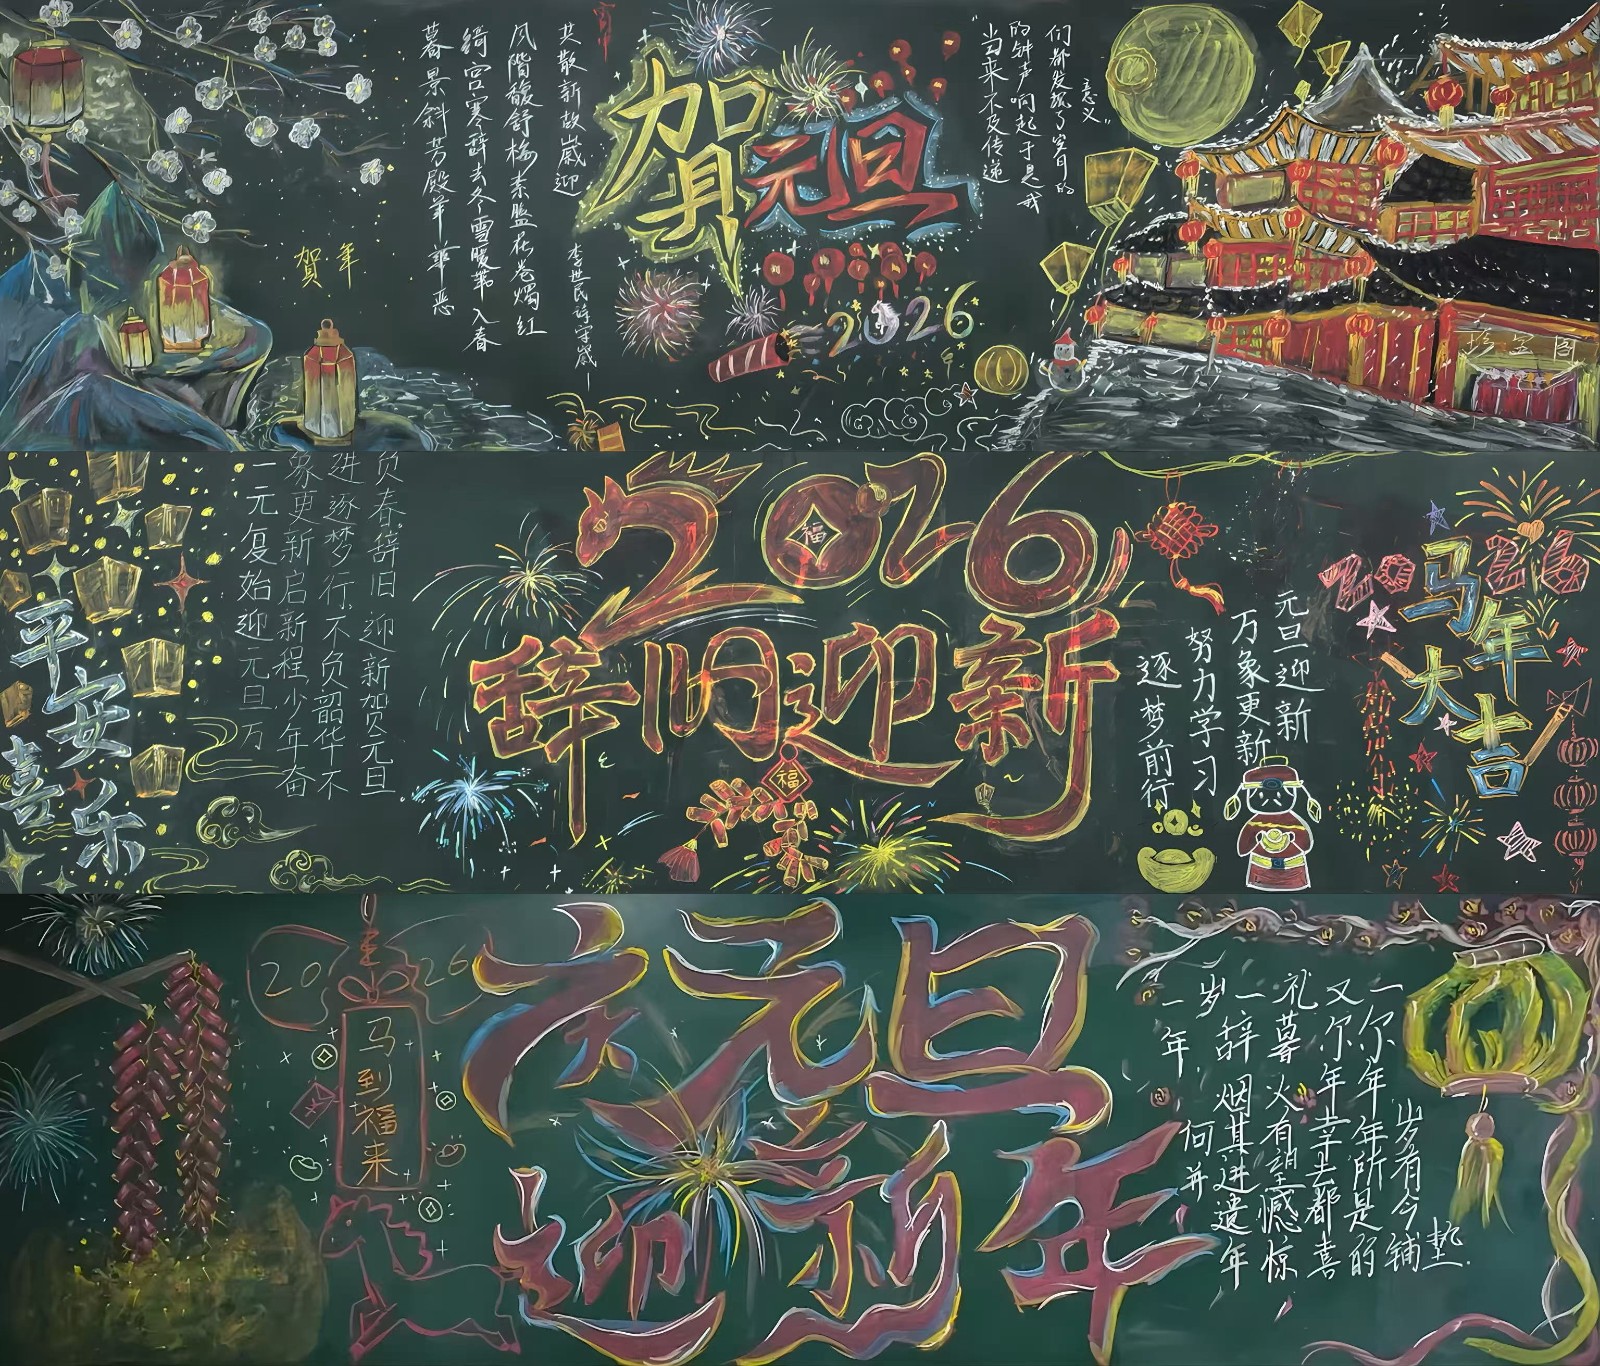 暮景斜芳殿年華
绮宫寒辞去冬雪暖带入春
风階馥舒梅素盤花卷燭红
共散新故歲迎
李世民诗守歲
贺年
贺元旦
2026
"当来不及传递
的钟声响起于是我
们都发现了岁月的
意义"
珍宝阁
平安
喜乐
负春辞旧迎新贺元旦
进逐梦行不负韶华不
象更新启新程少年奋
一元复始迎元旦万
2026
福
辞旧迎新
福
元旦迎新
万象更新
努力学习
逐梦前行
2026
马年
大吉
2026
马到福来
庆元旦
迎新年
岁有今
一尔年年所是的铺垫.
又尔年幸至都喜
礼暮火有望憾惊
一辞烟其进遗年
岁
一年
何并